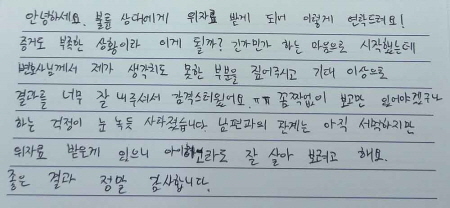 안녕하세요. 불륜 상대에게 위자료 받게 되어 이렇게 연락드려요!
증거도 부족한 상황이라 이게 될까? 긴가민가 하는 마음으로 시작했는데
변호사님께서 제가 생각지도 못한 부분을 짚어주시고 기대 이상으로
결과를 너무 잘 내주셔서 감격스러웠어요.ㅠㅠ 꼼짝없이 보고만 있어야겠구나
하는 걱정이 눈 녹듯 사라졌습니다. 남편과의 관계는 아직 서먹하지만
위자료 받은게 있으니 아이하고라도 잘 살아 보려고 해요.
좋은 결과 정말 감사합니다.